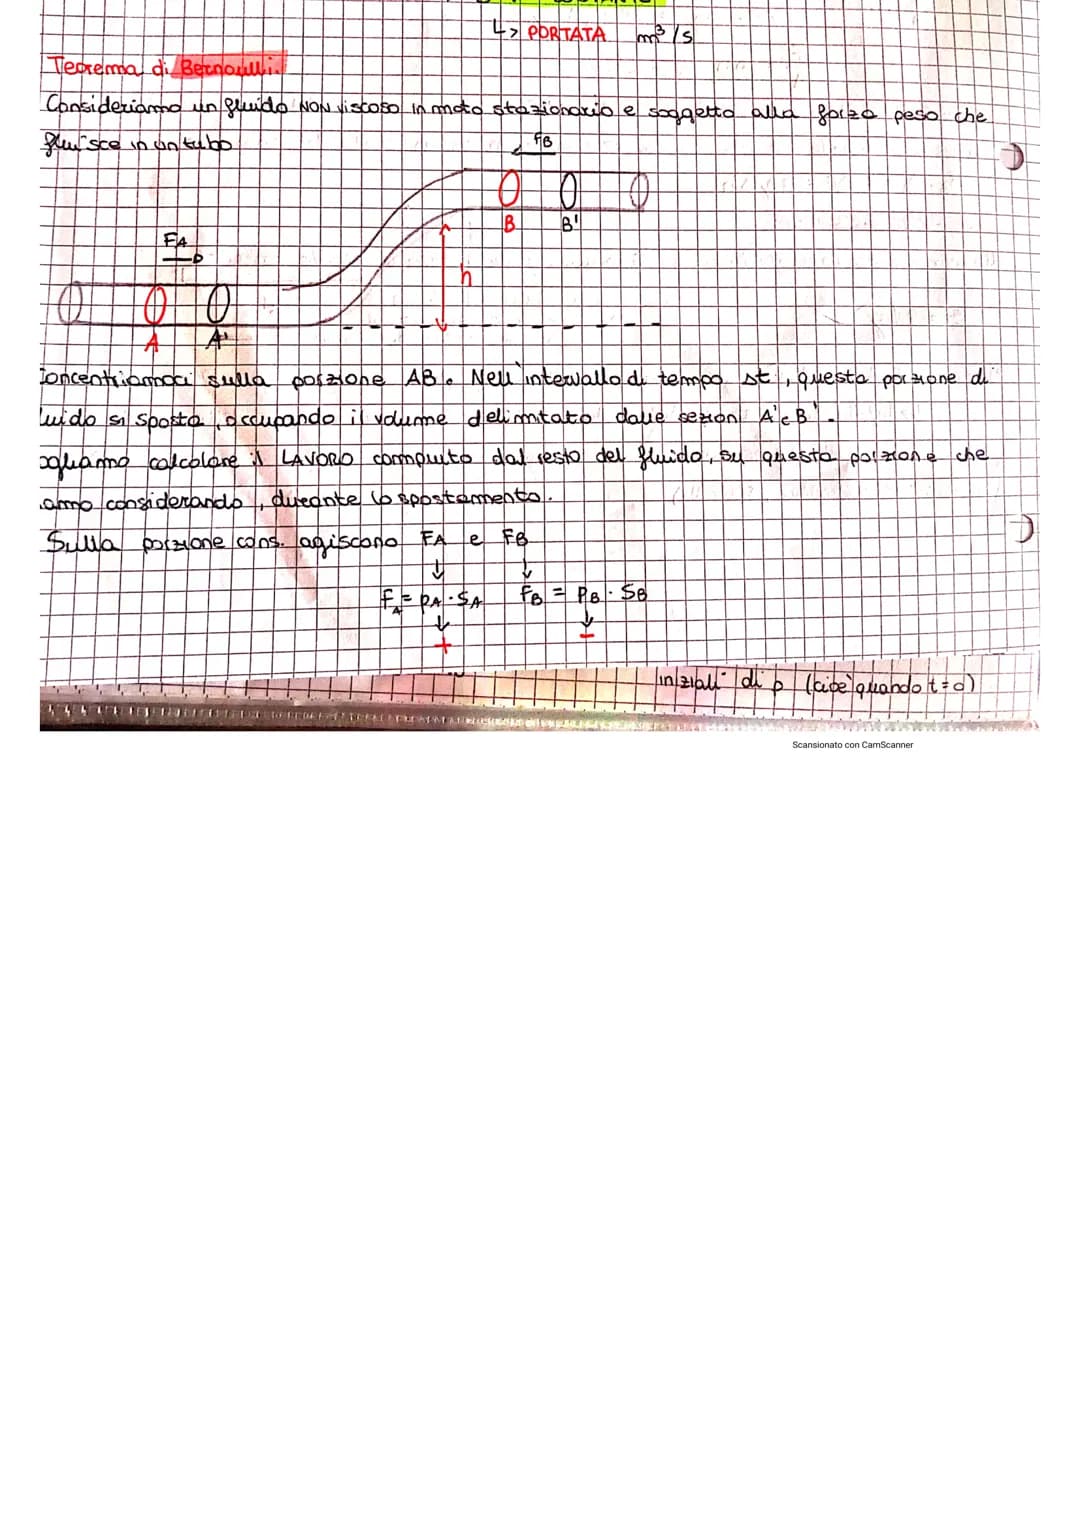 ↳ PORTATA m³/s
Teorema di Bernoulli.
Consideriamo un fluido NON viscoso in moto stazionario e soggetto alla forza peso che
fluisce in un tubo
FB
B B'
FA
h
A A'
concentriamoci sulla porzione AB. Nell'intervallo di tempo Δt, questa porzione di
luido si sposta, occupando il volume delimitato dalle sezioni A' e B'.
ogliamo calcolare il LAVORO compiuto dal resto del fluido, su questa porzione che
amo considerando, durante lo spostamento.
Sulla porzione cons. agiscono FA e FB
↓ ↓
FA = PA · SA FB = PB · SB
↓ ↓
+ -
iniziali di p (cioè quando t=0)
Scansionato con CamScanner